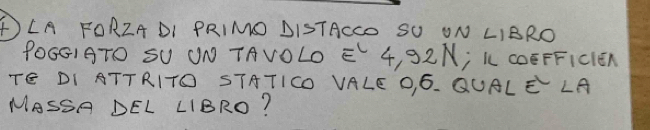 4) LA FORZA DI PRIMO DISTACCO SU UN LIBRO
POGGIATO SU UN TAVOLO E' 4,92N; IL COEFFICIEN
TE DI ATTRITO STATICO VALE 0,6. QUAL E' LA
MASSA DEL LIBRO?